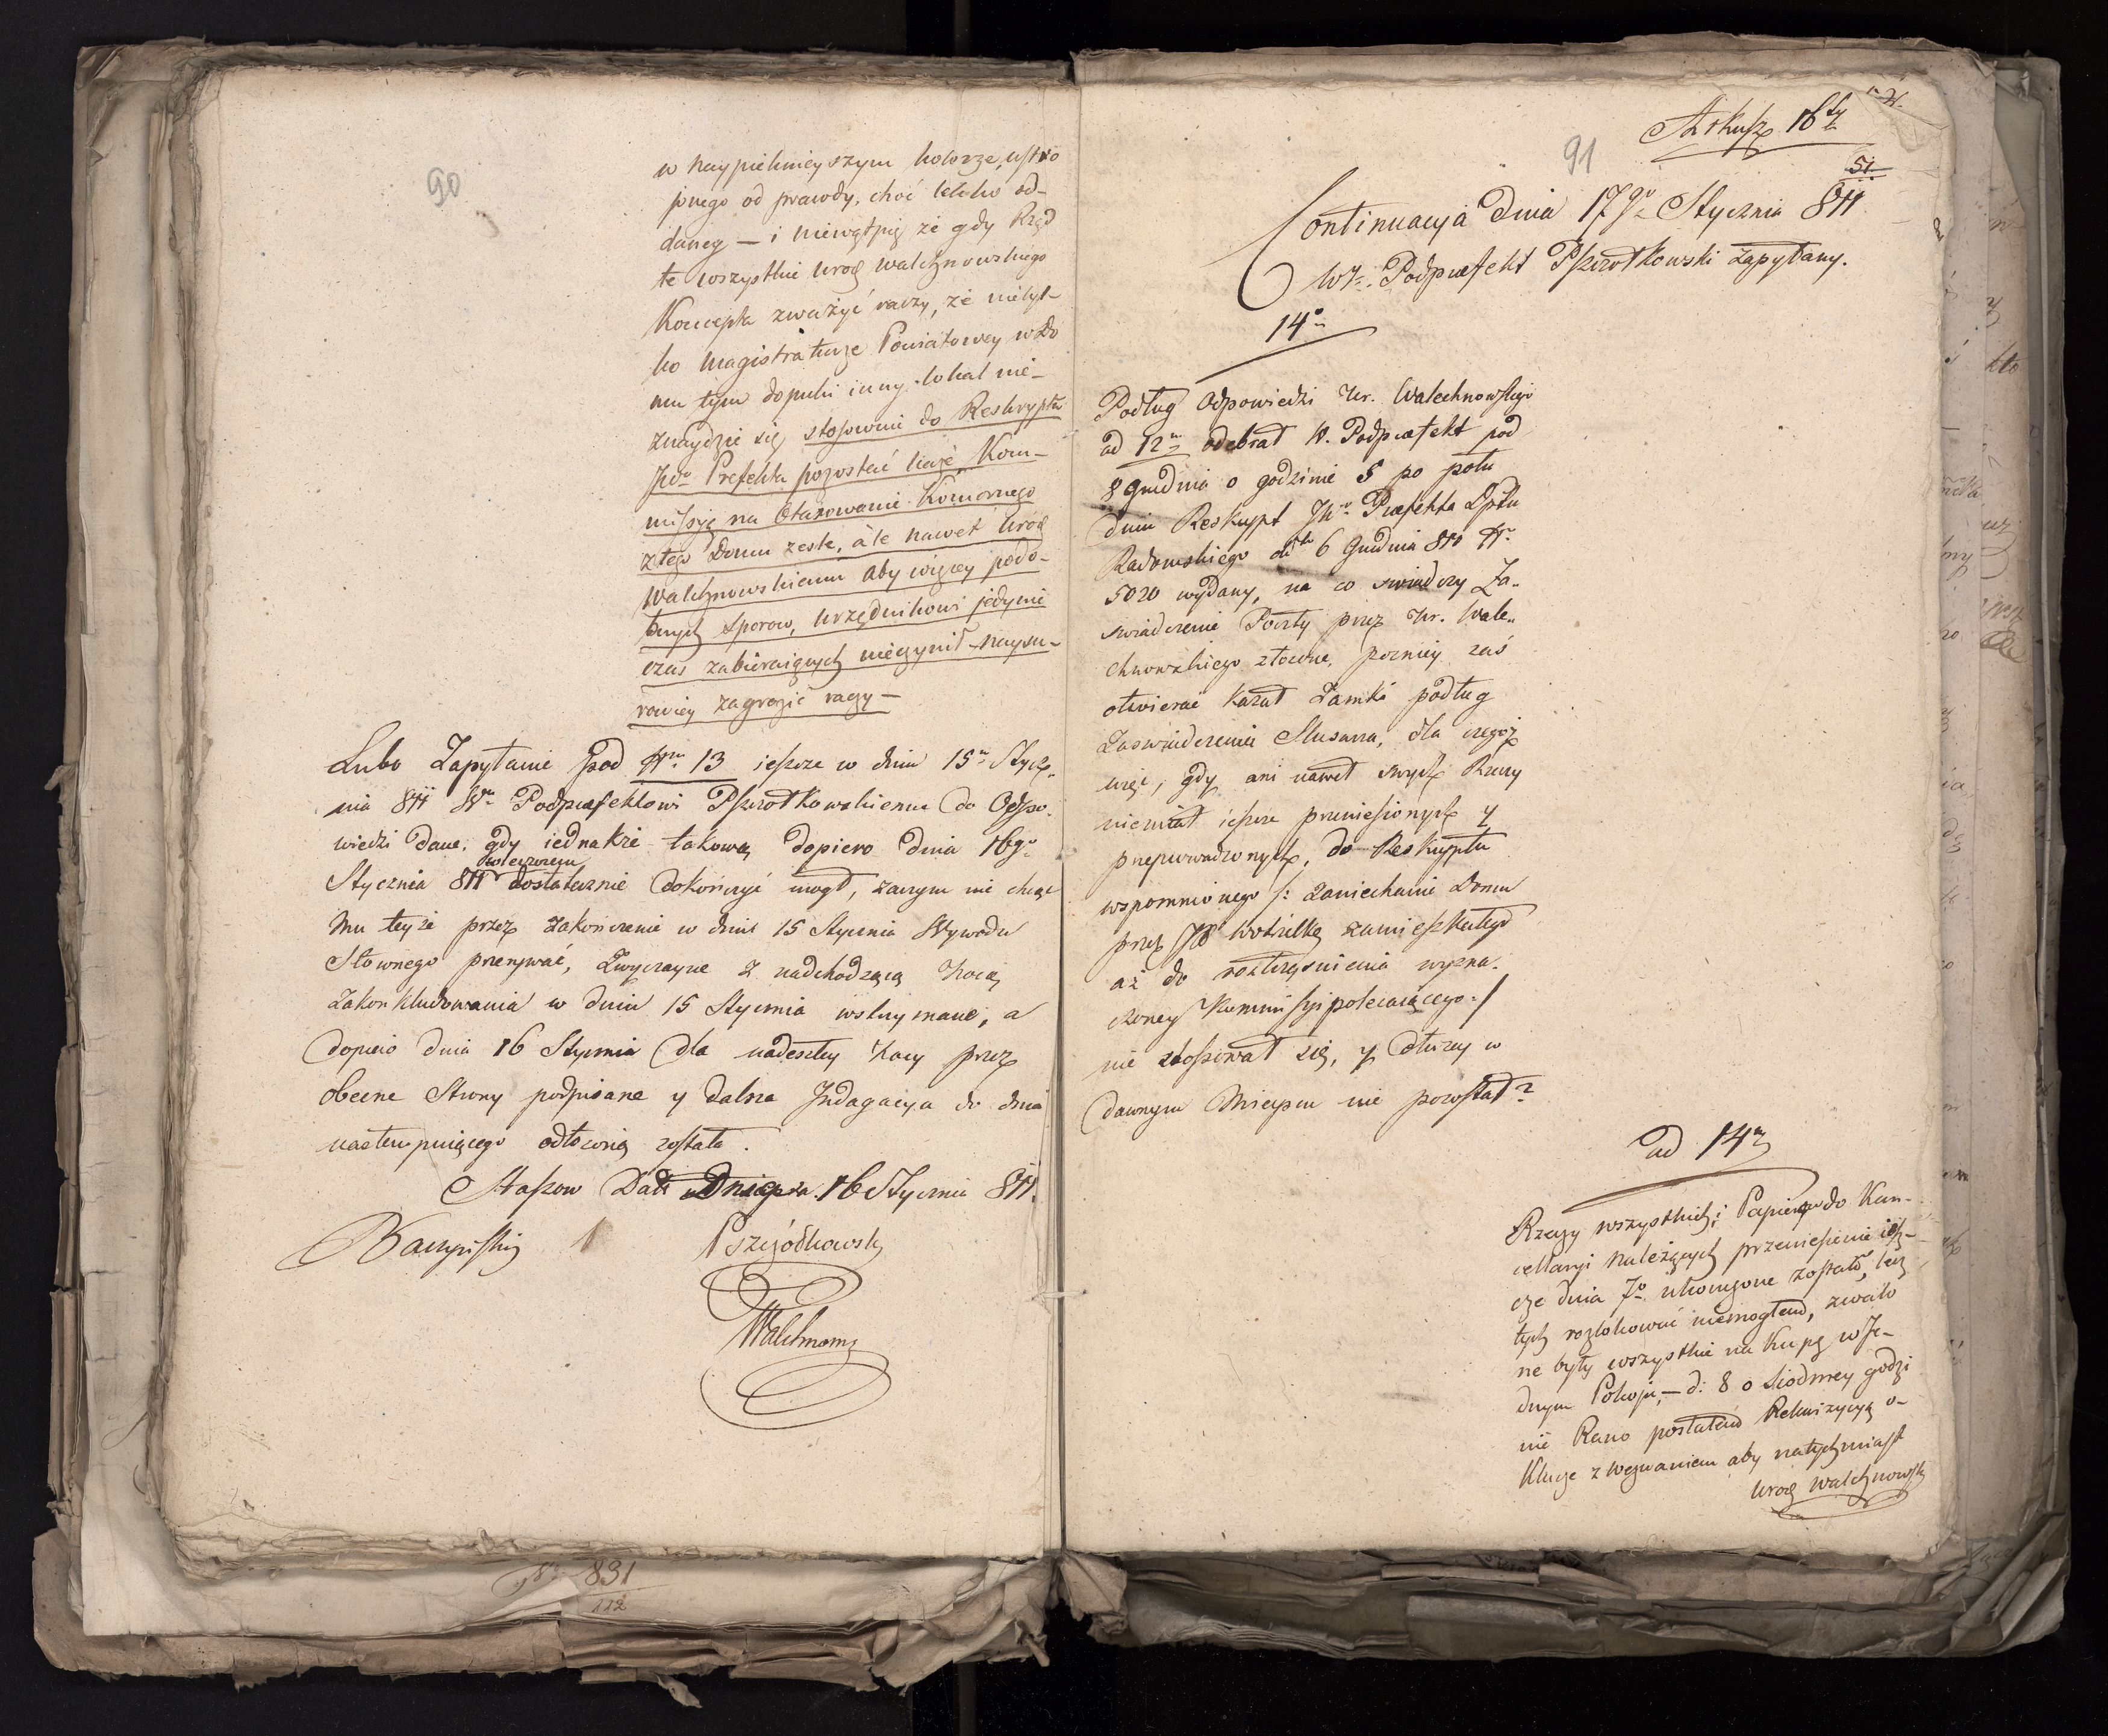 90
w naypieknieyszym kolorze, ustro
jonego od prawdy, choć lekko od-
daney — i niewątpię że gdy Rząd
te wszystkie Uroę Walchnowskiego
Koncepta zważyć raczy, że nietyl-
ko Magistraturze Powiatowey w Do
mu tym dopuki inny lokal nie-
znaydzie się stosownie do Reskryptu
JWo Prefekta pozostać każe, Kom-
missyę na otaxowanie Komornego
z tego Domu zeszle, ale nawet Uroę
Walchnowskiemu aby więcey podo-
bnych sporow, Urzędnikowi jedynie
czas zabieraiących nieczynił - naysu-
rowiey zagrozić raczy —
Lubo Zapytanie pod Nrm 13 ieszcze w dniu 15m Stycz-
nia 811 Wmu Podprefektowi Pszczołkowskiemu do Odpo-
wiedzi dane, gdy iednakże takową dopiero dnia 16go
wieczorem
Stycznia 811 dostatecznie dokończyć mógł, zaczym nie chcąc
mu teyże przez zakończenie w dniu 15 Stycznia Wywodu
Słownego przerywać, Zwyczayne z nadchodzącą Nocą
Zakonkludowania w dniu 15 Stycznia wstrzymane, a
dopiero dnia 16 Stycznia dla nadeszłey Nocy przez
obecne Strony podpisane y dalsza Indagacya do dnia
nastempuiącego odłożoną została.
Staszow Datt 16 Stycznia 811.
Pszczółkowski
Walchnows
831
112
Arkusz 16ty
91
51.
Continuacyja dnia 17go Stycznia 811
Wy. Podprefekt Pszczołkowski zapytany.
14o
Podług Odpowiedzi Ur. Walechnowskiego
ad 12m odebrał W. Podprefekt pod
8 Grudnia o godzinie 5 po połu
dniu Reskrypt JWo Prefekta Dptu
Radomskiego dto 6 Grudnia 810 Nro
5020 wydany, na co swiadczy Za-
swiadczenie Poczty przez Ur. Wale-
chnowskiego złożone, pozniey zaś
otwierać kazał Zamki podług
Zaswiadczenia Slusarza, dla czegoż
więc, gdy ani nawet swych Rzeczy
niemiał ieszcze przeniesionych y
przeprowadzonych, do Reskryptu
wspomnionego /: Zaniechanie Domu
przez JW Kotulkę zamieszkałego
aż do roztrząśnienia wyzna-
czoney Kommissyi polecaiącego :/
nie stosował się, y dłużey w
dawnym Mieyscu nie pozostał?
ad 14m
Rzeczy wszystkich i Papierow do Kan-
cellaryi należących przeniesienie iesz-
cze dnia 7o ukończone zostało, lecz
tych rozlokować niemogłem, zwalo
ne były wszystkie na Kupę w Je-
dnym Pokoju, — d: 8 o siodmey godzi
nie Rano posłałem Rekwizycyą o-
Klucze z wezwaniem aby natychmiast
Uroę Walchnowsk